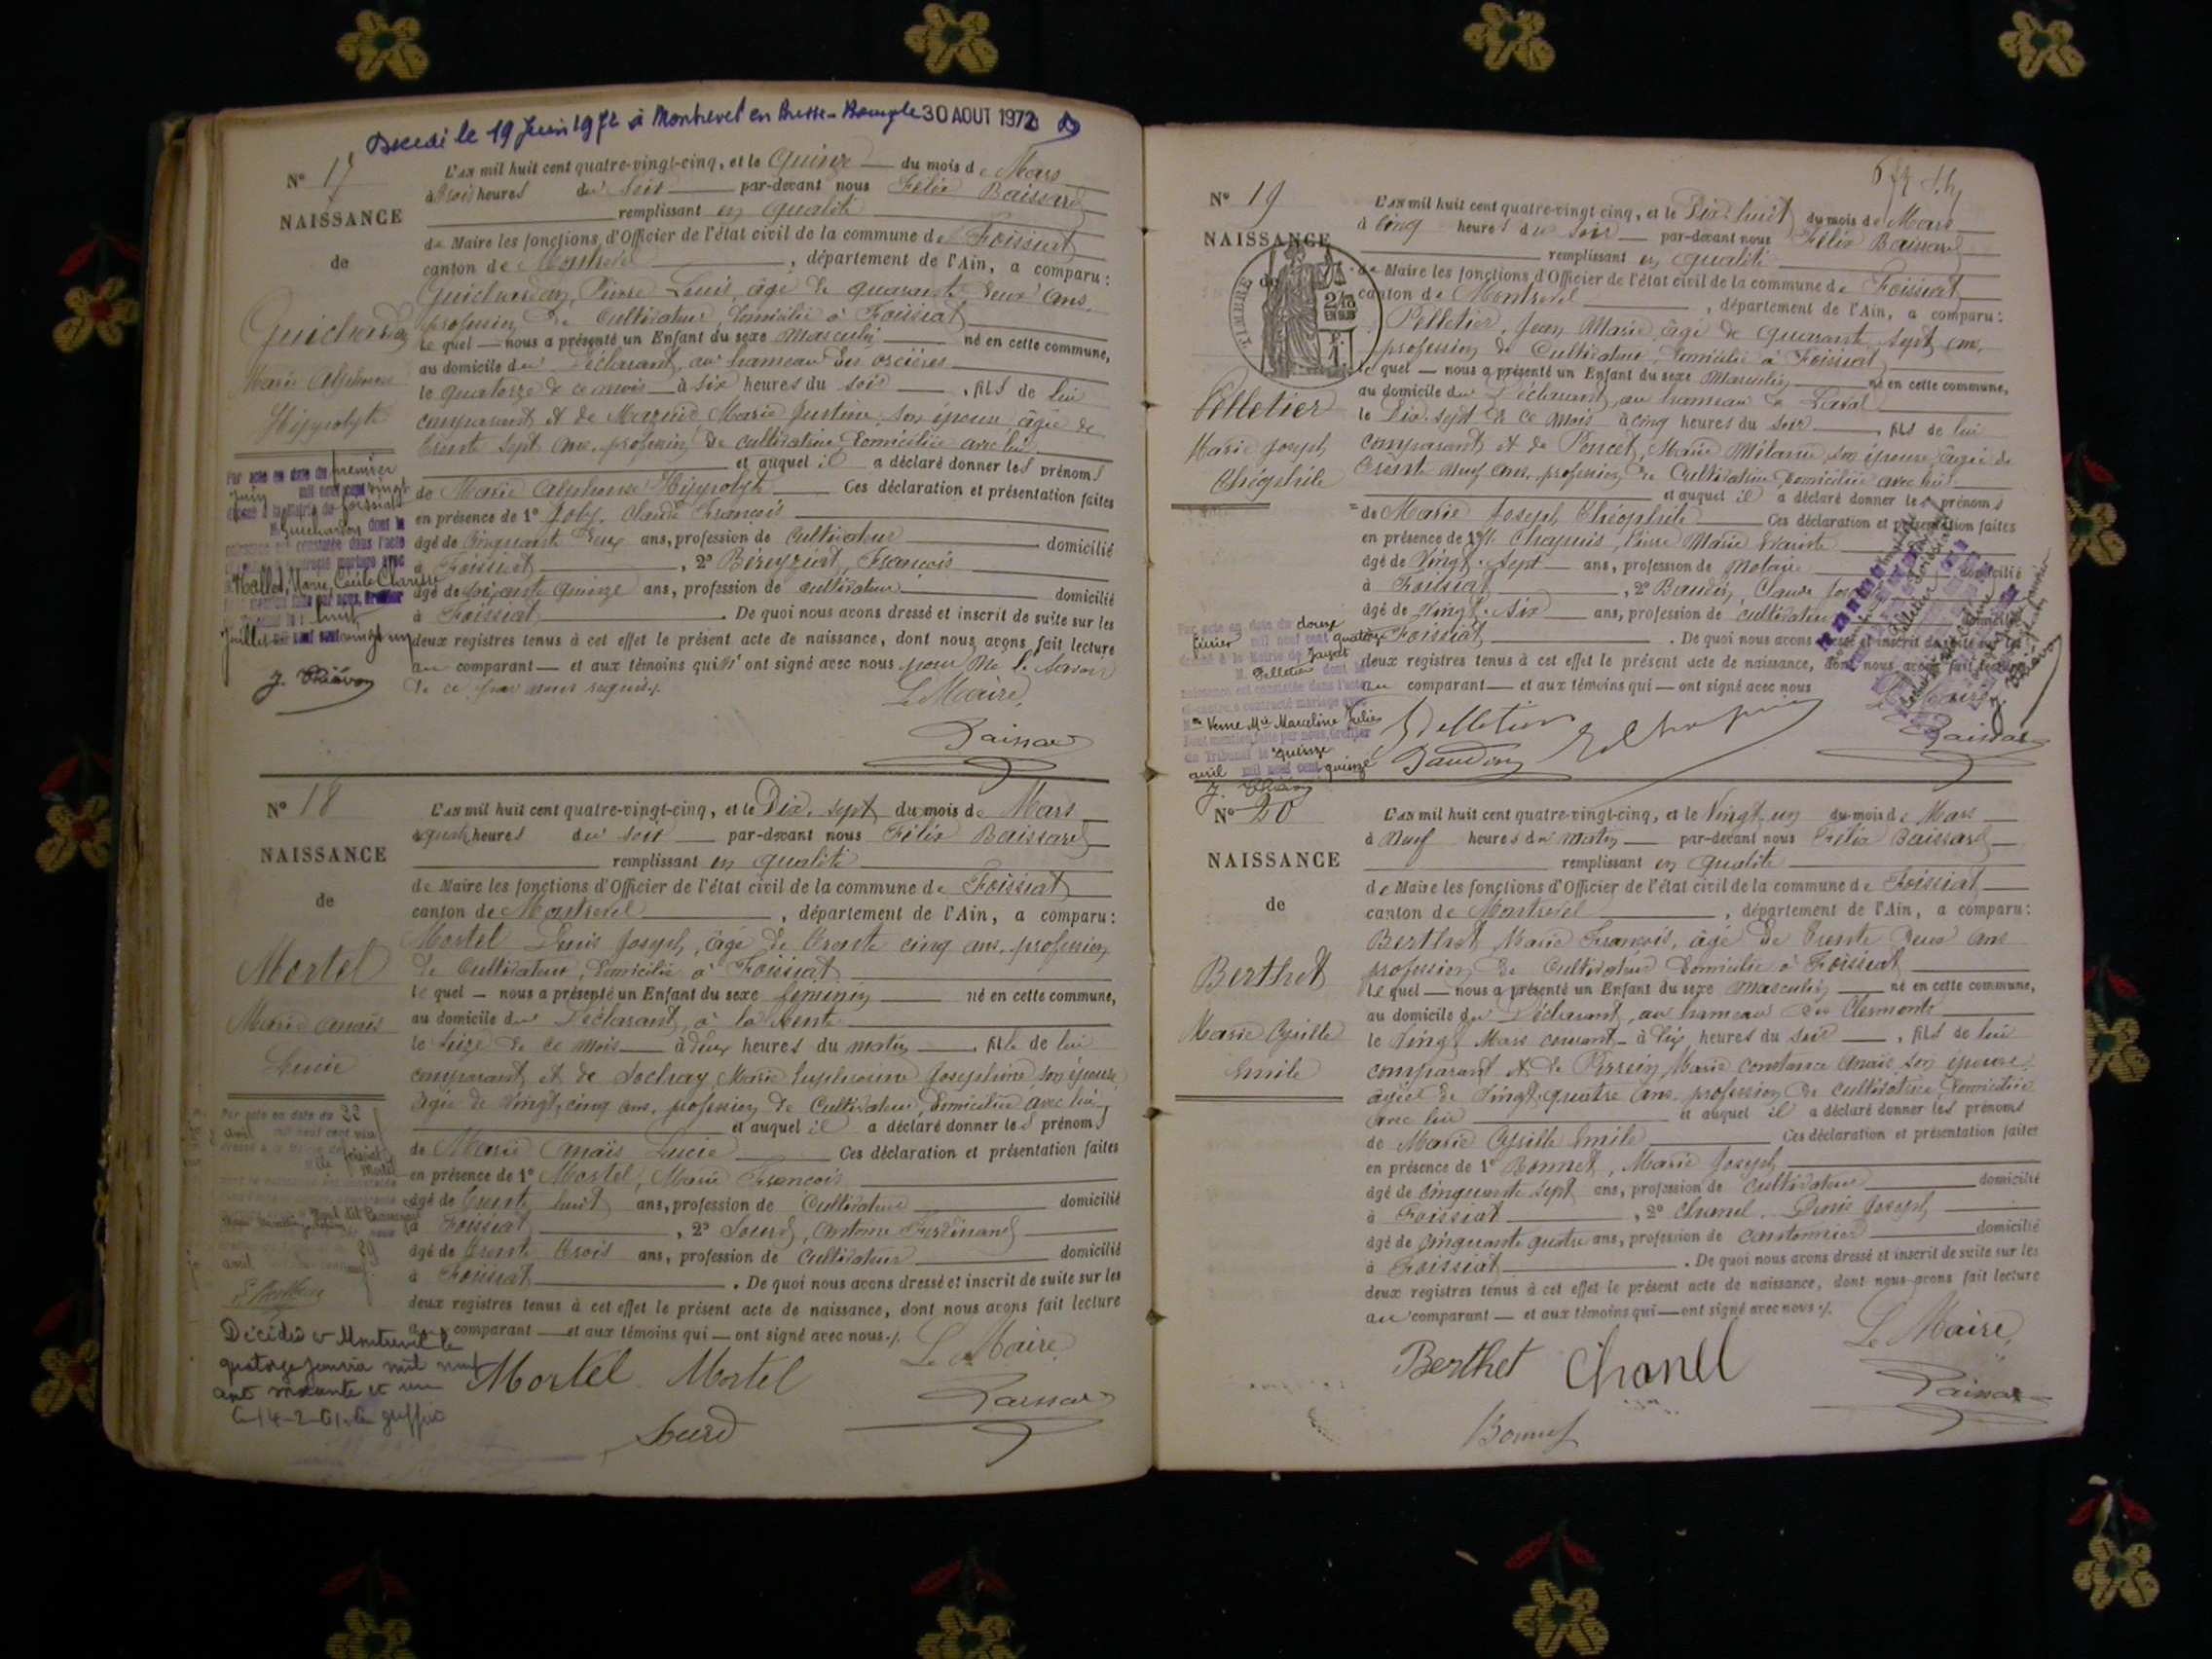 Decédé le 19 Juin 1972 à Montrevel en Bresse 30 AOUT 1972
N° 17
NAISSANCE
de
Guichardon
Marie Alphonse
Hippolyte
L'AN mil huit cent quatre-vingt-cinq, et le Quinze du mois de Mars
à trois heures du Soir par-devant nous Félix Baissard
remplissant en qualité
de Maire les fonctions d'Officier de l'état civil de la commune de Foissiat
canton de Montrevel, département de l'Ain, a comparu:
Guichardon, Pierre Louis, âgé de quarante deux ans
profession de Cultivateur, domicilié à Foissiat
Le quel — nous a présenté un Enfant du sexe Masculin né en cette commune,
au domicile du Déclarant, au hameau des
le quatorze de ce mois à six heures du soir, fils de lui
comparant et de Marie Justine, son épouse, âgée de
trente sept ans, profession de cultivatrice, domiciliée avec lui
et auquel il a déclaré donner les prénoms
de Marie Alphonse Hippolyte Ces déclaration et présentation faites
en présence de 1° Joly, Claude François
âgé de Cinquante deux ans, profession de Cultivateur domicilié
à Foissiat, 2° François
âgé de soixante quinze ans, profession de cultivateur domicilié
à Foissiat. De quoi nous avons dressé et inscrit de suite sur les
deux registres tenus à cet effet le présent acte de naissance, dont nous avons fait lecture
au comparant — et aux témoins qui n'ont signé avec nous pour ne le savoir
de ce par nous requis ./.
Le Maire,
Baissard
Par acte en date du premier
Juin mil neuf cent vingt
Foissiat
M. Guichardon dont la
naissance est constatée dans l'acte
mariage avec
Mallet, Marie, Cécile Clarisse
Juillet mil neuf cent vingt un
N° 18
NAISSANCE
de
Mortel
Marie Anaïs
Lucie
L'AN mil huit cent quatre-vingt-cinq, et le Dix-sept du mois de Mars
à quatre heures du soir par-devant nous Félix Baissard
remplissant en qualité
de Maire les fonctions d'Officier de l'état civil de la commune de Foissiat
canton de Montrevel, département de l'Ain, a comparu:
Mortel Denis Joseph, âgé de trente cinq ans, profession
de Cultivateur, domicilié à Foissiat
le quel — nous a présenté un Enfant du sexe féminin né en cette commune,
au domicile du Déclarant, à la
le Seize de ce mois à deux heures du matin, fille de lui
comparant et de Sochay Marie Euphrosine Josephine, son épouse
âgée de vingt-cinq ans, profession de Cultivateur, domiciliée avec lui,
et auquel il a déclaré donner les prénoms
de Marie Anaïs Lucie Ces déclaration et présentation faites
en présence de 1° Mortel, Marie François
âgé de trente huit ans, profession de Cultivateur domicilié
à Foissiat, 2° Antoine Ferdinand
âgé de trente trois ans, profession de Cultivateur domicilié
à Foissiat. De quoi nous avons dressé et inscrit de suite sur les
deux registres tenus à cet effet le présent acte de naissance, dont nous avons fait lecture
au comparant — et aux témoins qui — ont signé avec nous ./.
Le Maire
Mortel Mortel
Baissard
Par acte en date du 22
avril
Foissiat
Mortel
avril
Décédée à Montrevel le
quatorze janvier mil neuf
cent soixante et un
Le 14-2-61. Le greffier
N° 19
NAISSANCE
de
TIMBRE
Pelletier
Marie Joseph
Théophile
L'AN mil huit cent quatre-vingt-cinq, et le Dix-huit du mois de Mars
à cinq heures du soir par-devant nous Félix Baissard
remplissant en qualité
de Maire les fonctions d'Officier de l'état civil de la commune de Foissiat
canton de Montrevel, département de l'Ain, a comparu:
Pelletier, Jean Marie, âgé de quarante sept ans,
profession de Cultivateur, domicilié à Foissiat
le quel — nous a présenté un Enfant du sexe Masculin né en cette commune,
au domicile du Déclarant, au hameau de Laval
le Dix-sept de ce mois à cinq heures du soir, fils de lui
comparant et de Poncet, Marie Mélanie, son épouse, âgée de
trente neuf ans, profession de Cultivatrice domiciliée avec lui
et auquel il a déclaré donner les prénoms
de Marie Joseph Théophile Ces déclaration et présentation faites
en présence de 1° Chapuis, Pierre Marie Evariste
âgé de Vingt-Sept ans, profession de Notaire domicilié
à Foissiat, 2° Baudin, Claude
âgé de Vingt-Six ans, profession de cultivateur domicilié
à Foissiat. De quoi nous avons dressé et inscrit de suite sur les
deux registres tenus à cet effet le présent acte de naissance, dont nous avons fait lecture
au comparant — et aux témoins qui — ont signé avec nous
Le Maire
Pelletier
Baudin
Baissard
Par acte en date du douze
février mil neuf cent quatorze
dressé à la Mairie de Jayat
M. Pelletier dont la
naissance est constatée dans l'acte
ci-contre, a contracté mariage avec
Mlle Verne Mie Marceline Julie
Dont mention faite par nous, Greffier
du Tribunal le quinze
avril mil neuf cent quinze
N° 20
NAISSANCE
de
Berthet
Marie Cyrille
Emile
L'AN mil huit cent quatre-vingt-cinq, et le Vingt-un du mois de Mars
à Neuf heures du matin par-devant nous Félix Baissard
remplissant en qualité
de Maire les fonctions d'Officier de l'état civil de la commune de Foissiat
canton de Montrevel, département de l'Ain, a comparu:
Berthet Marie François, âgé de trente deux ans
profession de Cultivateur domicilié à Foissiat
le quel — nous a présenté un Enfant du sexe masculin né en cette commune,
au domicile du Déclarant, au hameau des Clermonts
le Vingt Mars courant à dix heures du soir, fils de lui
comparant et de Marie Constance Anaïs, son épouse,
âgée de Vingt-quatre ans, profession de cultivatrice, domiciliée
avec lui et auquel il a déclaré donner les prénoms
de Marie Cyrille Emile Ces déclaration et présentation faites
en présence de 1° Bonnet, Marie Joseph
âgé de Cinquante sept ans, profession de cultivateur domicilié
à Foissiat, 2° Chanel, Denis Joseph
âgé de Cinquante quatre ans, profession de cantonnier domicilié
à Foissiat. De quoi nous avons dressé et inscrit de suite sur les
deux registres tenus à cet effet le présent acte de naissance, dont nous avons fait lecture
au comparant — et aux témoins qui — ont signé avec nous ./.
Le Maire,
Berthet Chanel
Baissard
Bonnet